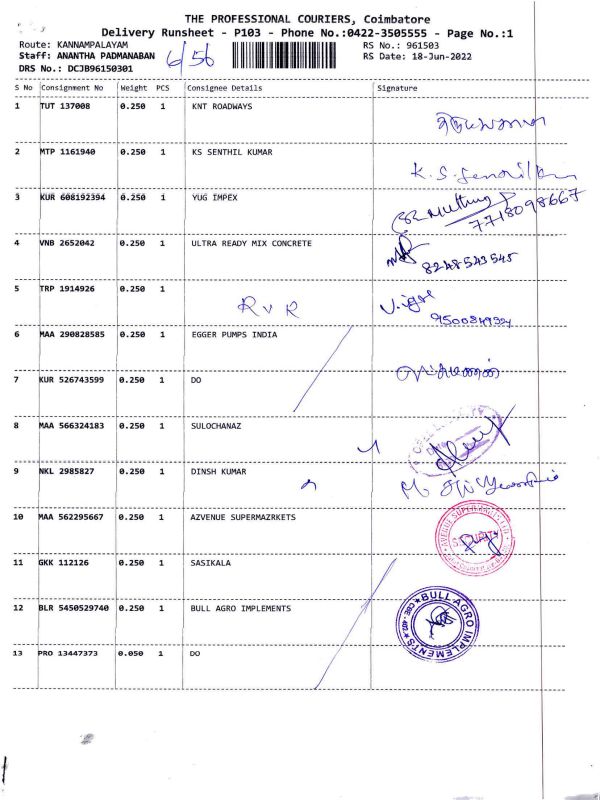 THE PROFESSIONAL COURIERS, Coimbatore
Delivery Runsheet - P103 - Phone No.:0422-3505555 - Page No.:1
Route: KANNAMPALAYAM RS No.: 961503
Staff: ANANTHA PADMANABAN 6/56 RS Date: 18-Jun-2022
DRS No.: DCJB96150301
S No Consignment No Weight PCS Consignee Details Signature
1 TUT 137008 0.250 1 KNT ROADWAYS
2 MTP 1161940 0.250 1 KS SENTHIL KUMAR
K.S.
3 KUR 608192394 0.250 1 YUG IMPEX
7718098667
4 VNB 2652042 0.250 1 ULTRA READY MIX CONCRETE
8248543545
5 TRP 1914926 0.250 1
R V R
6 MAA 290828585 0.250 1 EGGER PUMPS INDIA
7 KUR 526743599 0.250 1 DO
8 MAA 566324183 0.250 1 SULOCHANAZ
9 NKL 2985827 0.250 1 DINSH KUMAR
10 MAA 562295667 0.250 1 AZVENUE SUPERMAZRKETS
11 GKK 112126 0.250 1 SASIKALA
12 BLR 5450529740 0.250 1 BULL AGRO IMPLEMENTS
BULL AGRO IMPLEMENTS
13 PRO 13447373 0.050 1 DO